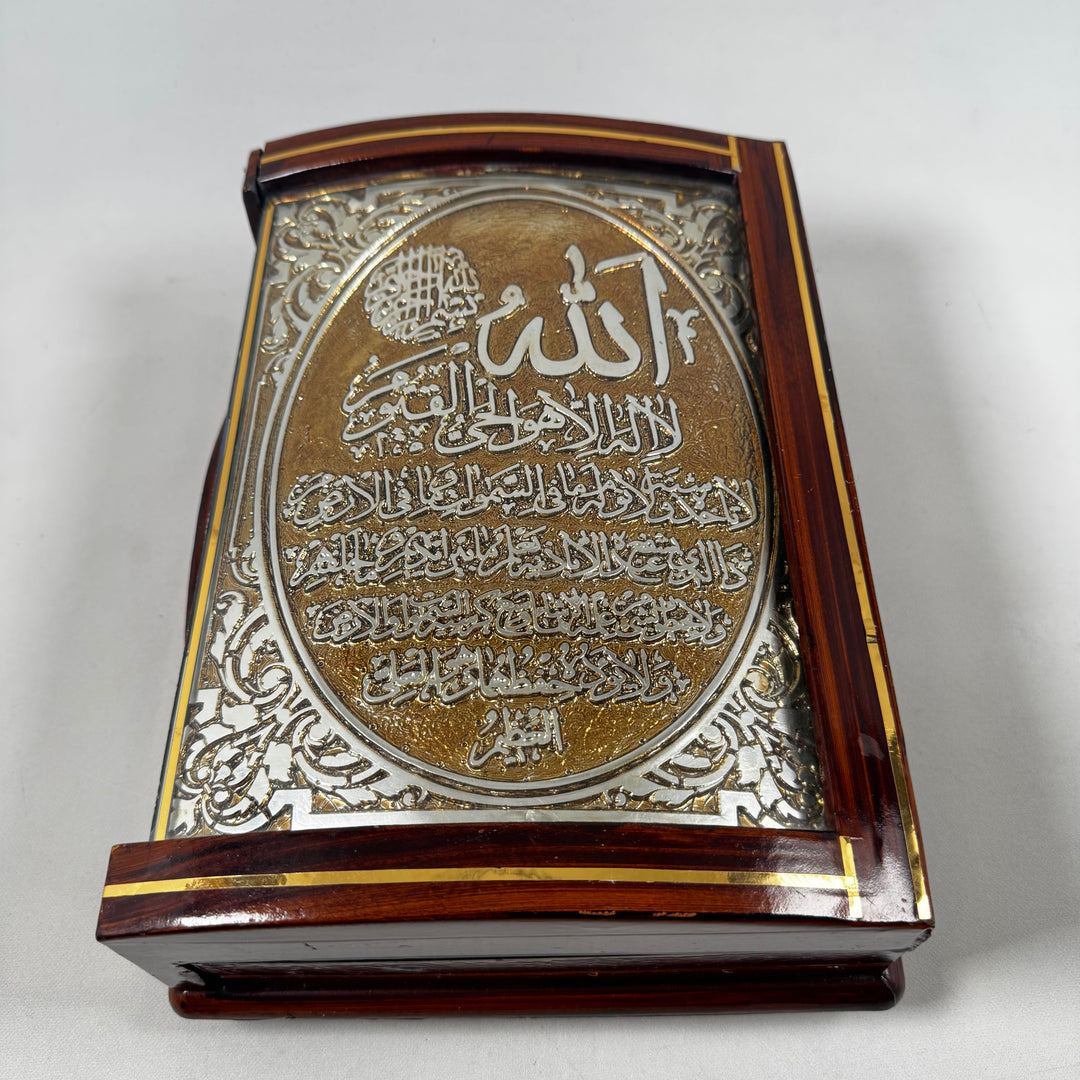 بسم الله
الله
لا اله الا هو الحي القيوم
لا تاخذه سنة ولا نوم له ما في السموات وما في الارض
من ذا الذي يشفع عنده الا باذنه يعلم ما بين ايديهم وما خلفهم
ولا يحيطون بشيء من علمه الا بما شاء وسع كرسيه السموات والارض
ولا يؤده حفظهما وهو العلي
العظيم